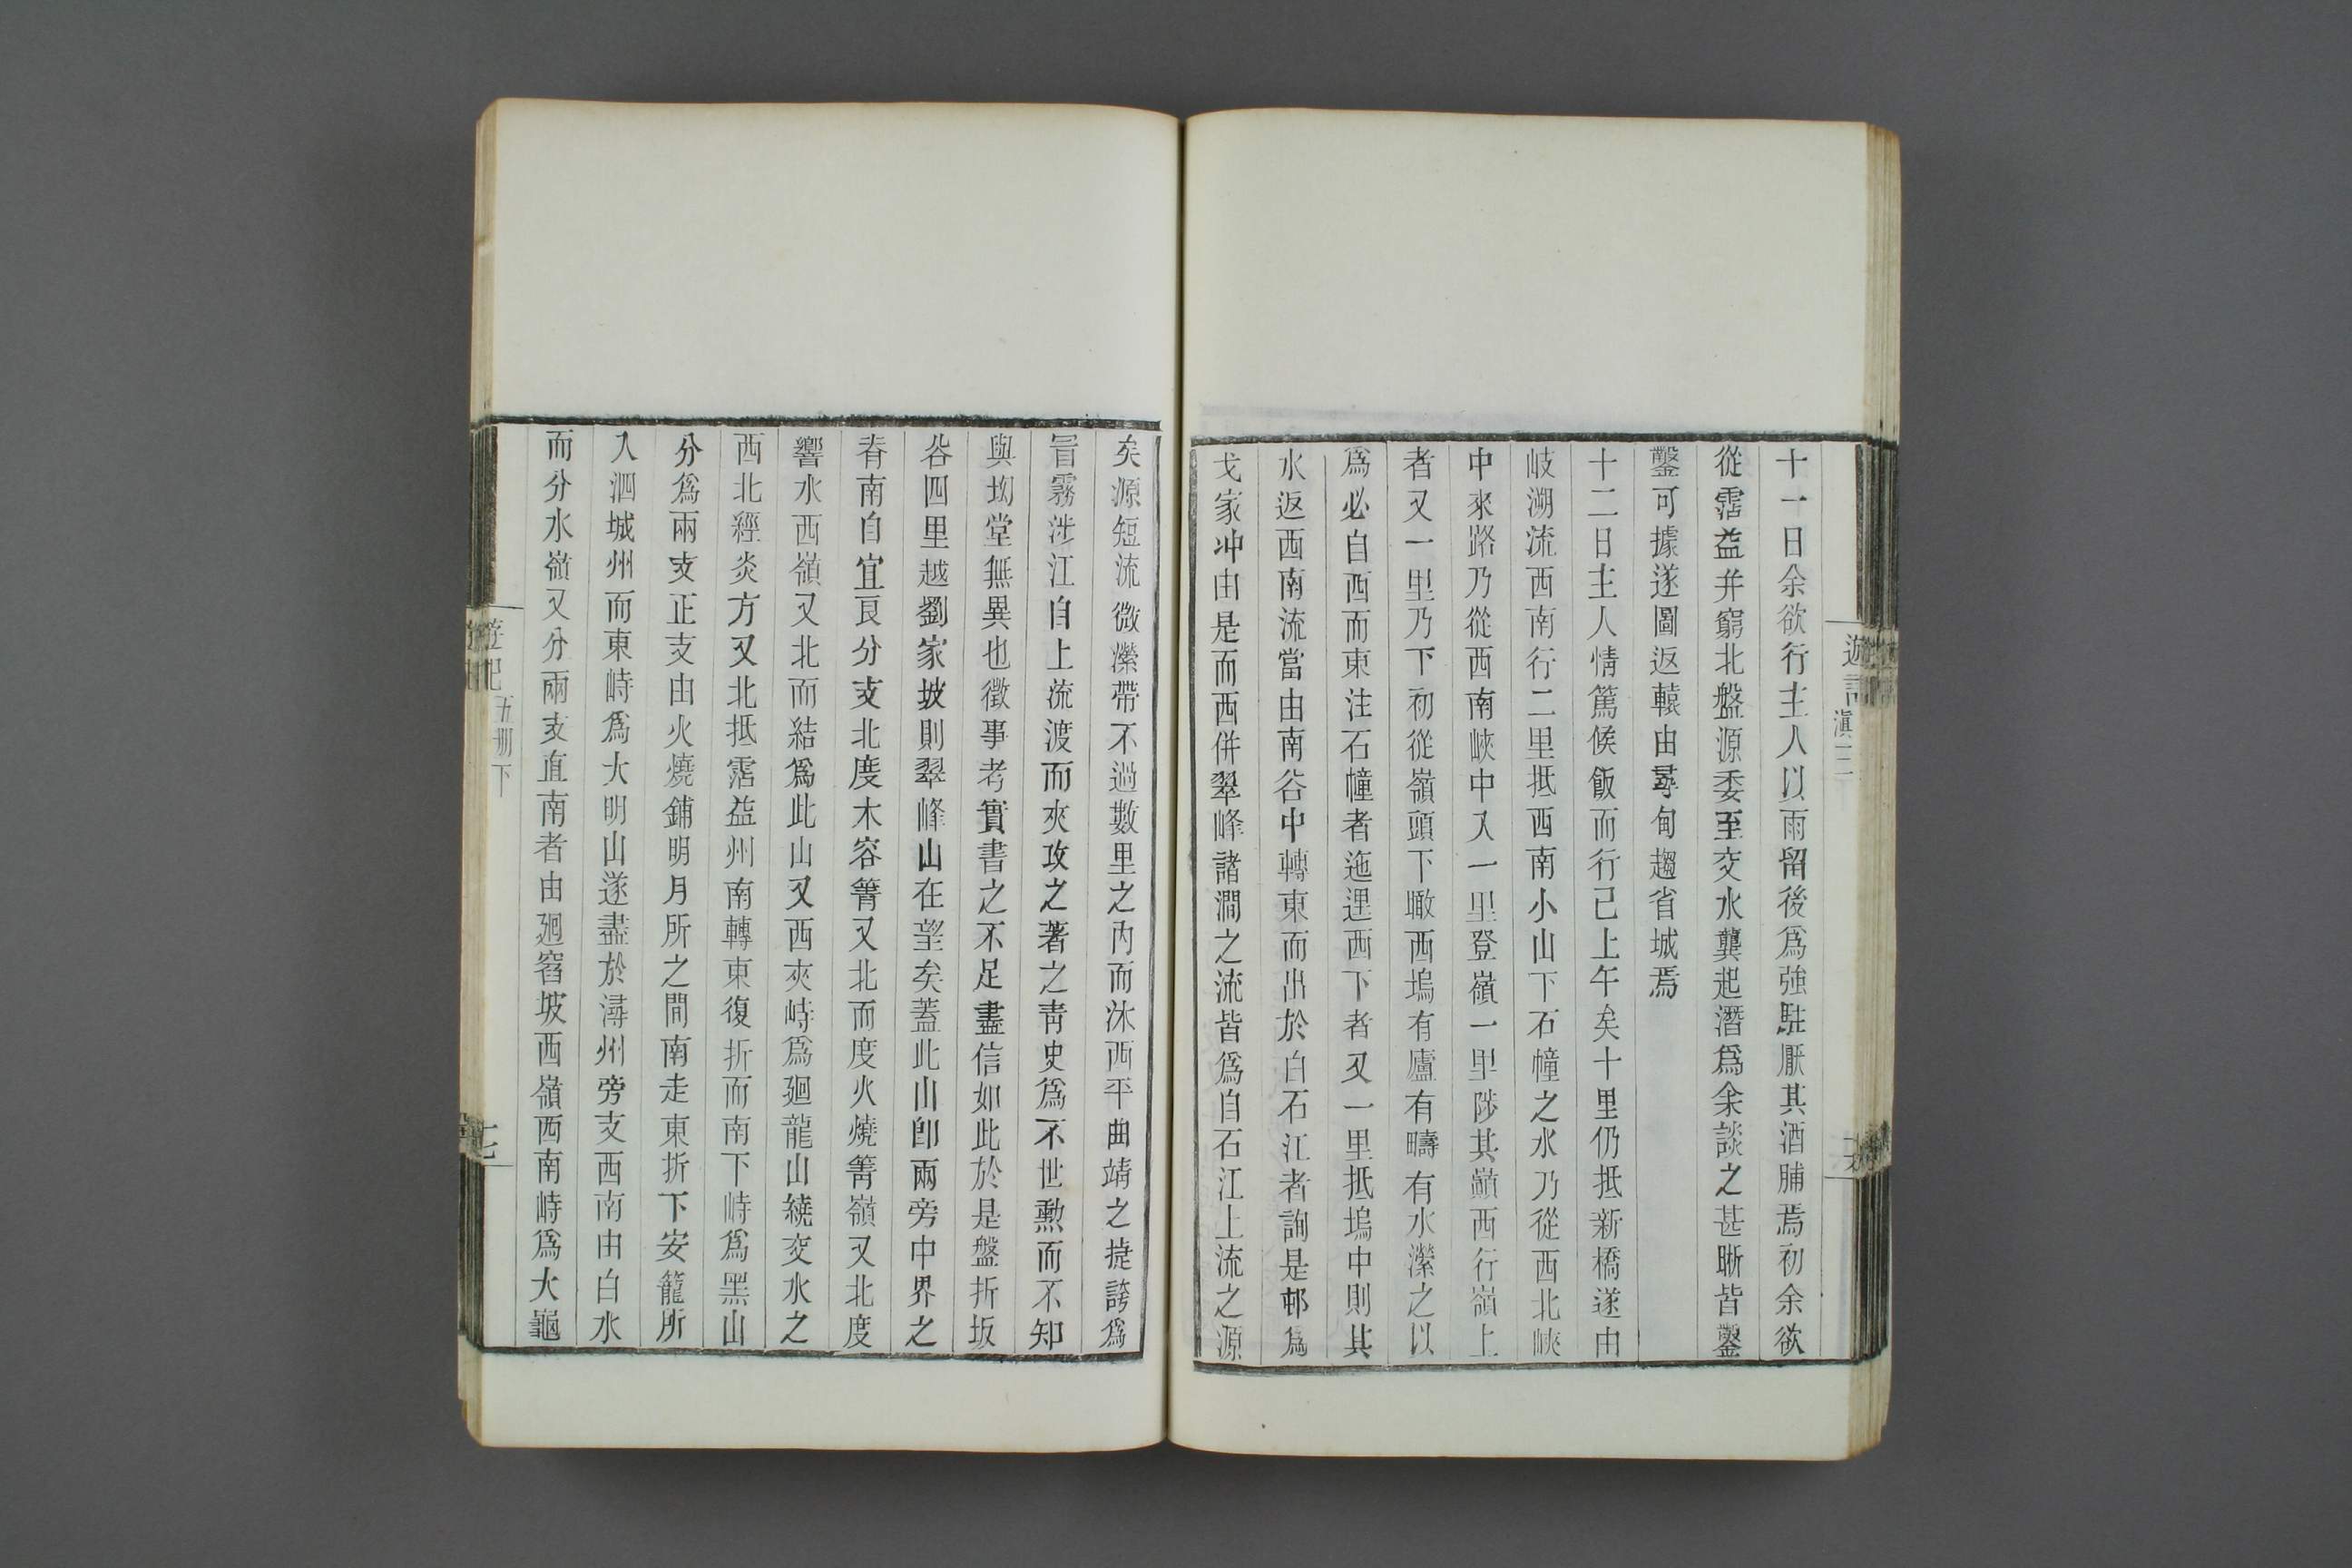 遊記
滇三
十一日余欲行主人以雨留後爲強駐厭其酒脯焉初余欲
從霑益并窮北盤源委至交水龔起潛爲余談之甚晰皆鑿
鑿可據遂圖返轅由尋甸趨省城焉
十二日主人情篤候飯而行已上午矣十里仍抵新橋遂由
岐溯流西南行二里抵西南小山下石幢之水乃從西北峽
中來路乃從西南峽中入一里登嶺一里陟其巓西行嶺上
者又一里乃下初從嶺頭下瞰西塢有廬有疇有水瀠之以
爲必自西而東注石幢者迤逕西下者又一里抵塢中則其
水返西南流當由南谷中轉東而出於白石江者詢是邨爲
戈家冲由是而西併翠峰諸澗之流皆爲白石江上流之源
矣源短流微瀠帶不過數里之內而沐西平曲靖之捷誇爲
冒霧涉江自上流渡而夾攻之著之靑史爲不世勳而不知
與坳堂無異也徵事考實書之不足盡信如此於是盤折坂
谷四里越劉家坡則翠峰山在望矣蓋此山卽兩旁中界之
脊南自宜良分支北度木容箐又北而度火燒箐嶺又北度
響水西嶺又北而結爲此山又西夾峙爲廻龍山繞交水之
西北經炎方又北抵霑益州南轉東復折而南下峙爲黑山
分爲兩支正支由火燒鋪明月所之間南走東折下安籠所
入泗城州而東峙爲大明山遂盡於潯州旁支西南由白水
而分水嶺又分兩支直南者由廻窞坡西嶺西南峙爲大龜
遊記
五册下
七